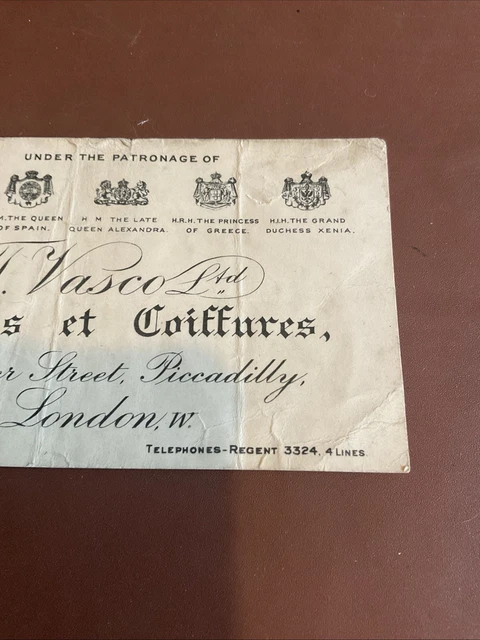 UNDER THE PATRONAGE OF
M. THE QUEEN OF SPAIN.
H M THE LATE QUEEN ALEXANDRA.
H.R.H. THE PRINCESS OF GREECE.
H.I.H. THE GRAND DUCHESS XENIA.
T. Vasco Ltd
s et Coiffures,
er Street, Piccadilly,
London, W.
TELEPHONES-REGENT 3324, 4 LINES.